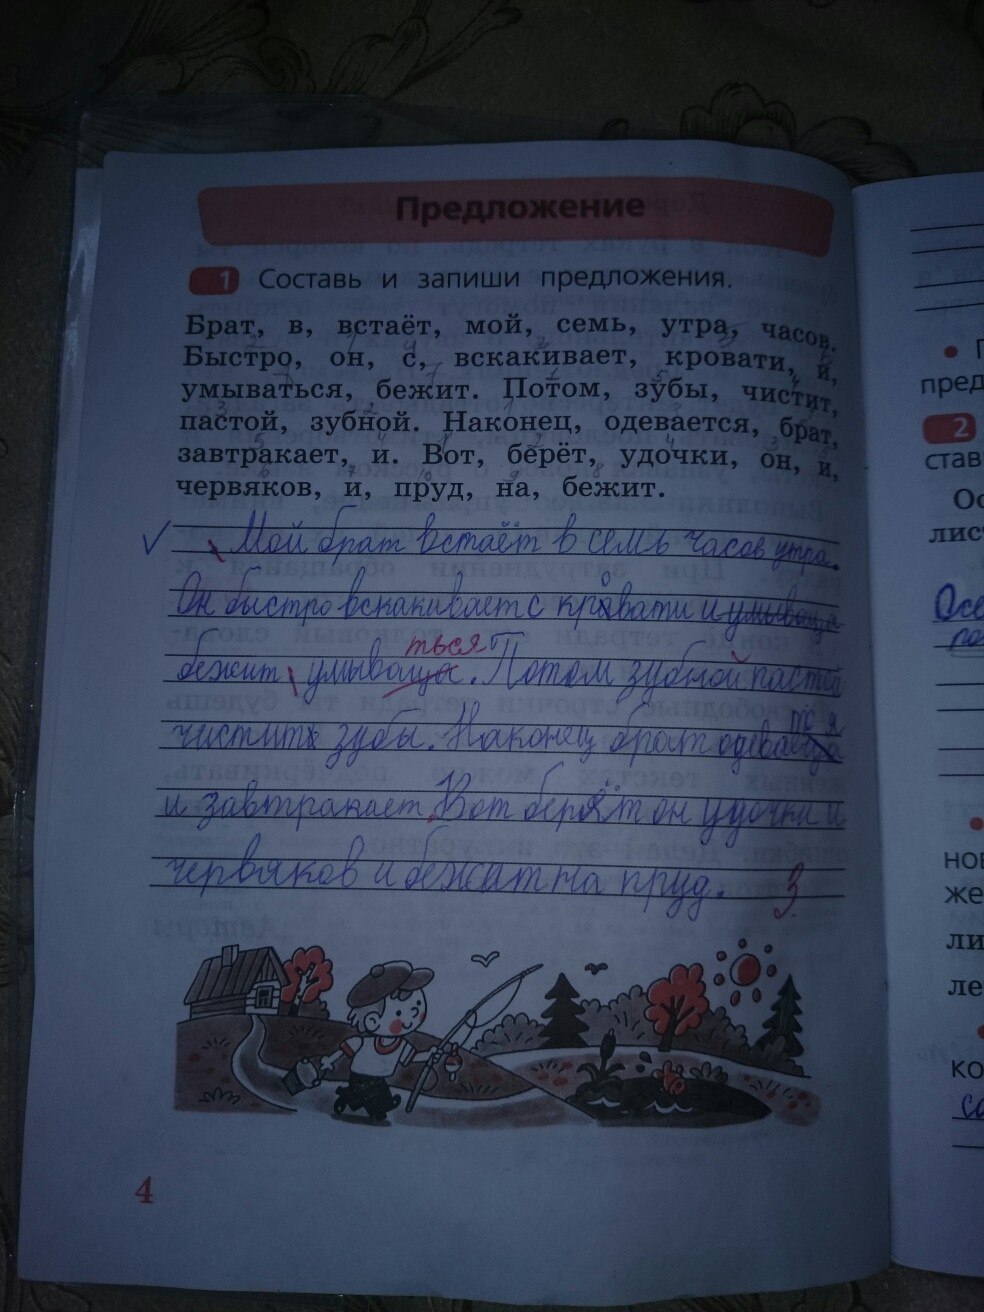 Предложение
1 Составь и запиши предложения.
Брат, в, встаёт, мой, семь, утра, часов.
Быстро, он, с, вскакивает, кровати, и,
умываться, бежит. Потом, зубы, чистит,
пастой, зубной. Наконец, одевается, брат,
завтракает, и. Вот, берёт, удочки, он, и,
червяков, и, пруд, на, бежит.
Мой брат встаёт в семь часов утра.
Он быстро вскакивает с кровати и умываца
ться
бежит умываца. Потом зубной пастой
чистит зубы. Наконец брат одевается
и завтракает. Вот берёт он удочки и
червяков и бежит на пруд. 3
4
П
пред
2
став
Ос
лист
Осе
нов
же
ли
ле
ко